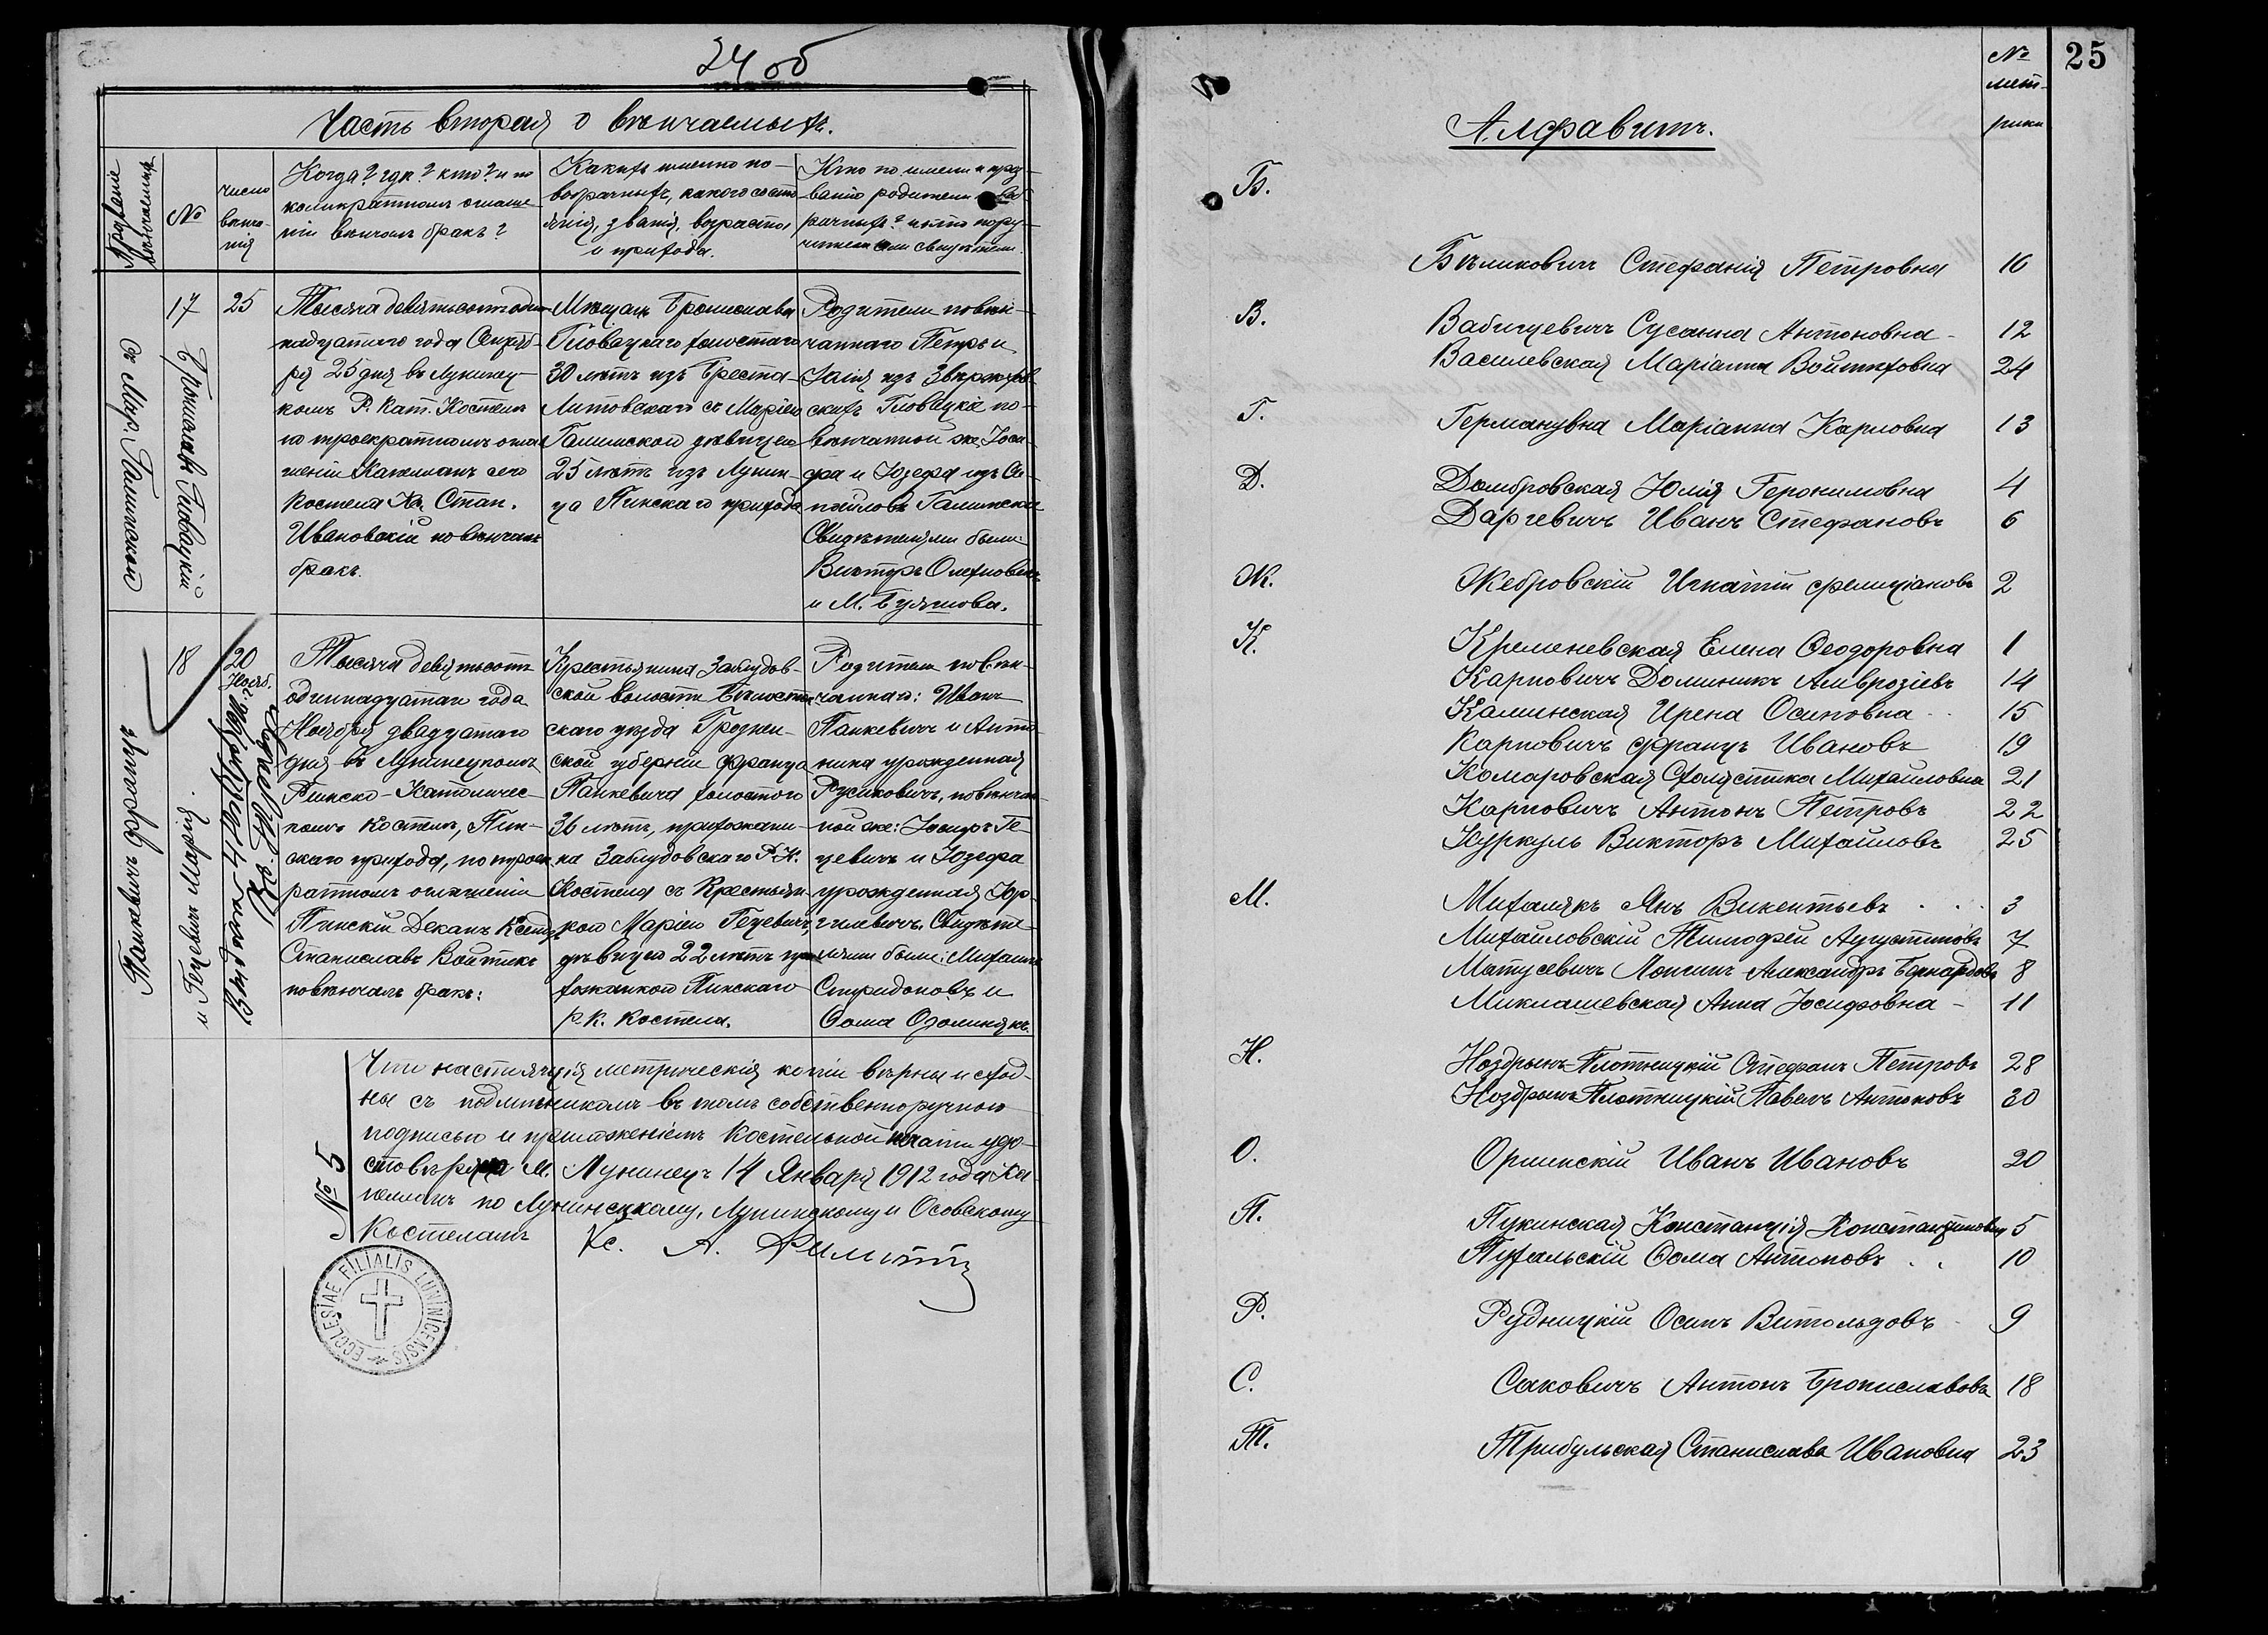 24 об
Часть вторая о вѣнчаемыхъ.
№
число
вѣнча-
нія
Когда? гдѣ? кто? и по
коликратномъ оглаше
ніи вѣнчалъ бракъ?
Какихъ именно но-
вобрачныхъ, какого состо
янія, званія, возраста
и прихода.
Кто по имени и проз-
ванію родители
рачныхъ? и кто пору-
чители или свидѣтели.
17
25
Бронислав Гловацкій
съ Мар. Галинской
Тысяча девятьсот один
надцатаго года Сентяб-
ря 25 дня въ Лунинец-
комъ Р. Кат. Костелѣ
по троекратномъ огла
шеніи Капеланъ сего
Костела Кс. Стан.
Ивановскій повѣнчалъ
бракъ.
Мѣщанъ Бронислава
Гловацкаго холостаго
30 лѣтъ изъ Бреста-
Литовскаго съ Маріею
Галинской дѣвицею
25 лѣтъ изъ Лунин-
ца Пинскаго прихода
Родители повѣн-
чаннаго Петръ и
Юлія изъ
скихъ Гловацкіе по-
вѣнчанной же Іоси
фа и Юзефа изъ
Галинскіе
Свидѣтелями были:
Викторъ
и М.
18
20
Нояб.
Панкевичъ Францъ
и Гецевичъ Марія
Тысяча девятьсотъ
одиннадцатаго года
Ноября двадцатаго
дня въ Лунинецкомъ
Римско-Католичес-
комъ Костелѣ, Пин-
скаго прихода, по троек
ратномъ оглашеніи
Пинскій Деканъ Ксендзъ
Станиславъ Войтикъ
повѣнчалъ бракъ:
Крестьянина Заблудов-
ской волости Бѣлосток
скаго уѣзда Гроднен-
ской губерніи Франца
Панкевича холостого
36 лѣтъ, прихожани-
на Заблудовскаго Р.К.
Костела съ Крестьян-
кою Маріею Гецевичъ,
дѣвицею 22 лѣтъ при
хожанкою Пинскаго
р.к. костела.
Родители повѣн-
чаннаго: Иванъ
Панкевичъ и Анто-
нина урожденная
Русиковичъ, повѣнчан
ной же: Іосифъ Ге-
цевичъ и Юзефа
урожденная Юр-
гилевичъ. Свидѣте-
лями были: Михаилъ
Спиридоновъ и
Ѳома Озолинякъ.
№ 5
Что настоящія метрическія копіи вѣрны и сход-
ны съ подлинникомъ въ томъ собственноручною
подписью и приложеніемъ Костельной печати удо-
стовѣряю М. Лунинец 14 Января 1912 года Ка-
пелланъ по Лунинецкому, Лунинскому и Осовскому
Костеламъ Кс. А.
ECCLESIAE FILIALIS LUNINICENSIS
25
№
мет-
рики
Алфавитъ.
Б.
Бѣликовичъ Стефанія Петровна 16
В.
Вабищевичъ Сусанна Антоновна - 12
Василевская Маріанна Войтеховна 24
Г.
Германувна Маріанна Карловна 13
Д.
Домбровская Юлія Геронимовна 4
Даргевичъ Иванъ Стефановъ 6
Ж.
Жебровскій Игнатій Фелиціановъ 2
К.
Кременевская Елена Ѳеодоровна 1
Карповичъ Доминикъ Амврозіевъ 14
Калинская Ирена Осиповна 15
Карповичъ Францъ Ивановъ 19
Комаровская Схоластика Михайловна 21
Карповичъ Антонъ Петровъ 22
Куркуль Викторъ Михайловъ 25
М.
Михалякъ Янъ Викентьевъ 3
Михайловскій Тимофей Аугустиновъ 7
Матусевичъ Лонгинъ Александръ Бернардовъ 8
Миклашевская Анна Іосифовна - 11
Н.
Ноздрынъ-Плотницкій Стефанъ Петровъ 28
Ноздрынъ-Плотницкій Павелъ Антоновъ 30
О.
Орлинскій Иванъ Ивановъ 20
П.
Пукинская Констанція Константиновна 5
Пухальскій Ѳома Антоновъ 10
Р.
Рудницкій Осипъ Витольдовъ 9
С.
Саковичъ Антонъ Брониславовъ 18
Т.
Трибульская Станислава Ивановна 23